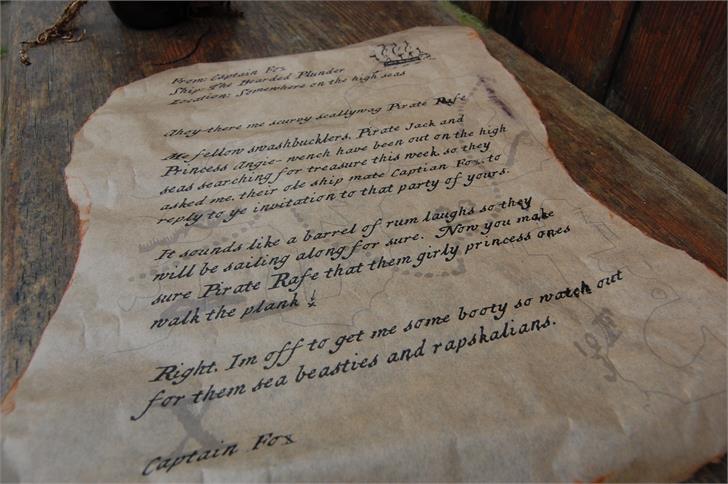 From: Captain Fox
Ship: The Hoarded Plunder
Location: Somewhere on the high seas
Ahoy-there me scurvy scallywag Pirate Rafe
Me fellow swashbucklers, Pirate Jack and
Princess Angie-wench have been out on the high
seas searching for treasure this week, so they
asked me, their ole ship mate Captian Fox, to
reply to ye invitation to that party of yours.
It sounds like a barrel of rum laughs so they
will be sailing along for sure. Now you make
sure Pirate Rafe that them girly princess ones
walk the plank!
Right, Im off to get me some booty so watch out
for them sea beasties and rapskalians.
Captain Fox